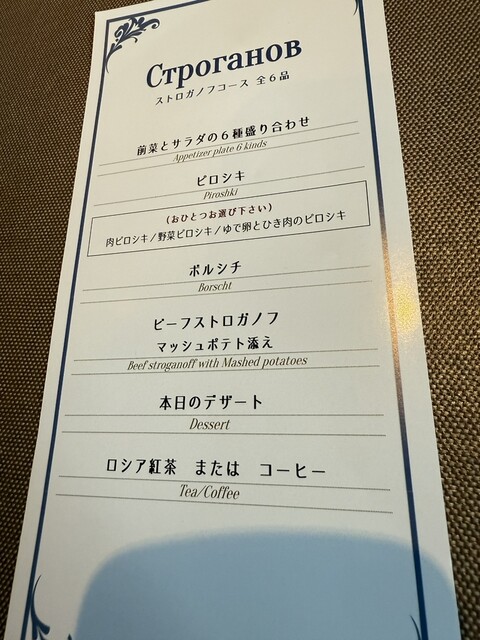 Строганов
ストロガノフコース 全6品
前菜とサラダの6種盛り合わせ
Appetizer plate 6 kinds
ピロシキ
Piroshki
(おひとつお選び下さい)
肉ピロシキ/野菜ピロシキ/ゆで卵とひき肉のピロシキ
ボルシチ
Borscht
ビーフストロガノフ
マッシュポテト添え
Beef stroganoff with Mashed potatoes
本日のデザート
Dessert
ロシア紅茶 または コーヒー
Tea/Coffee